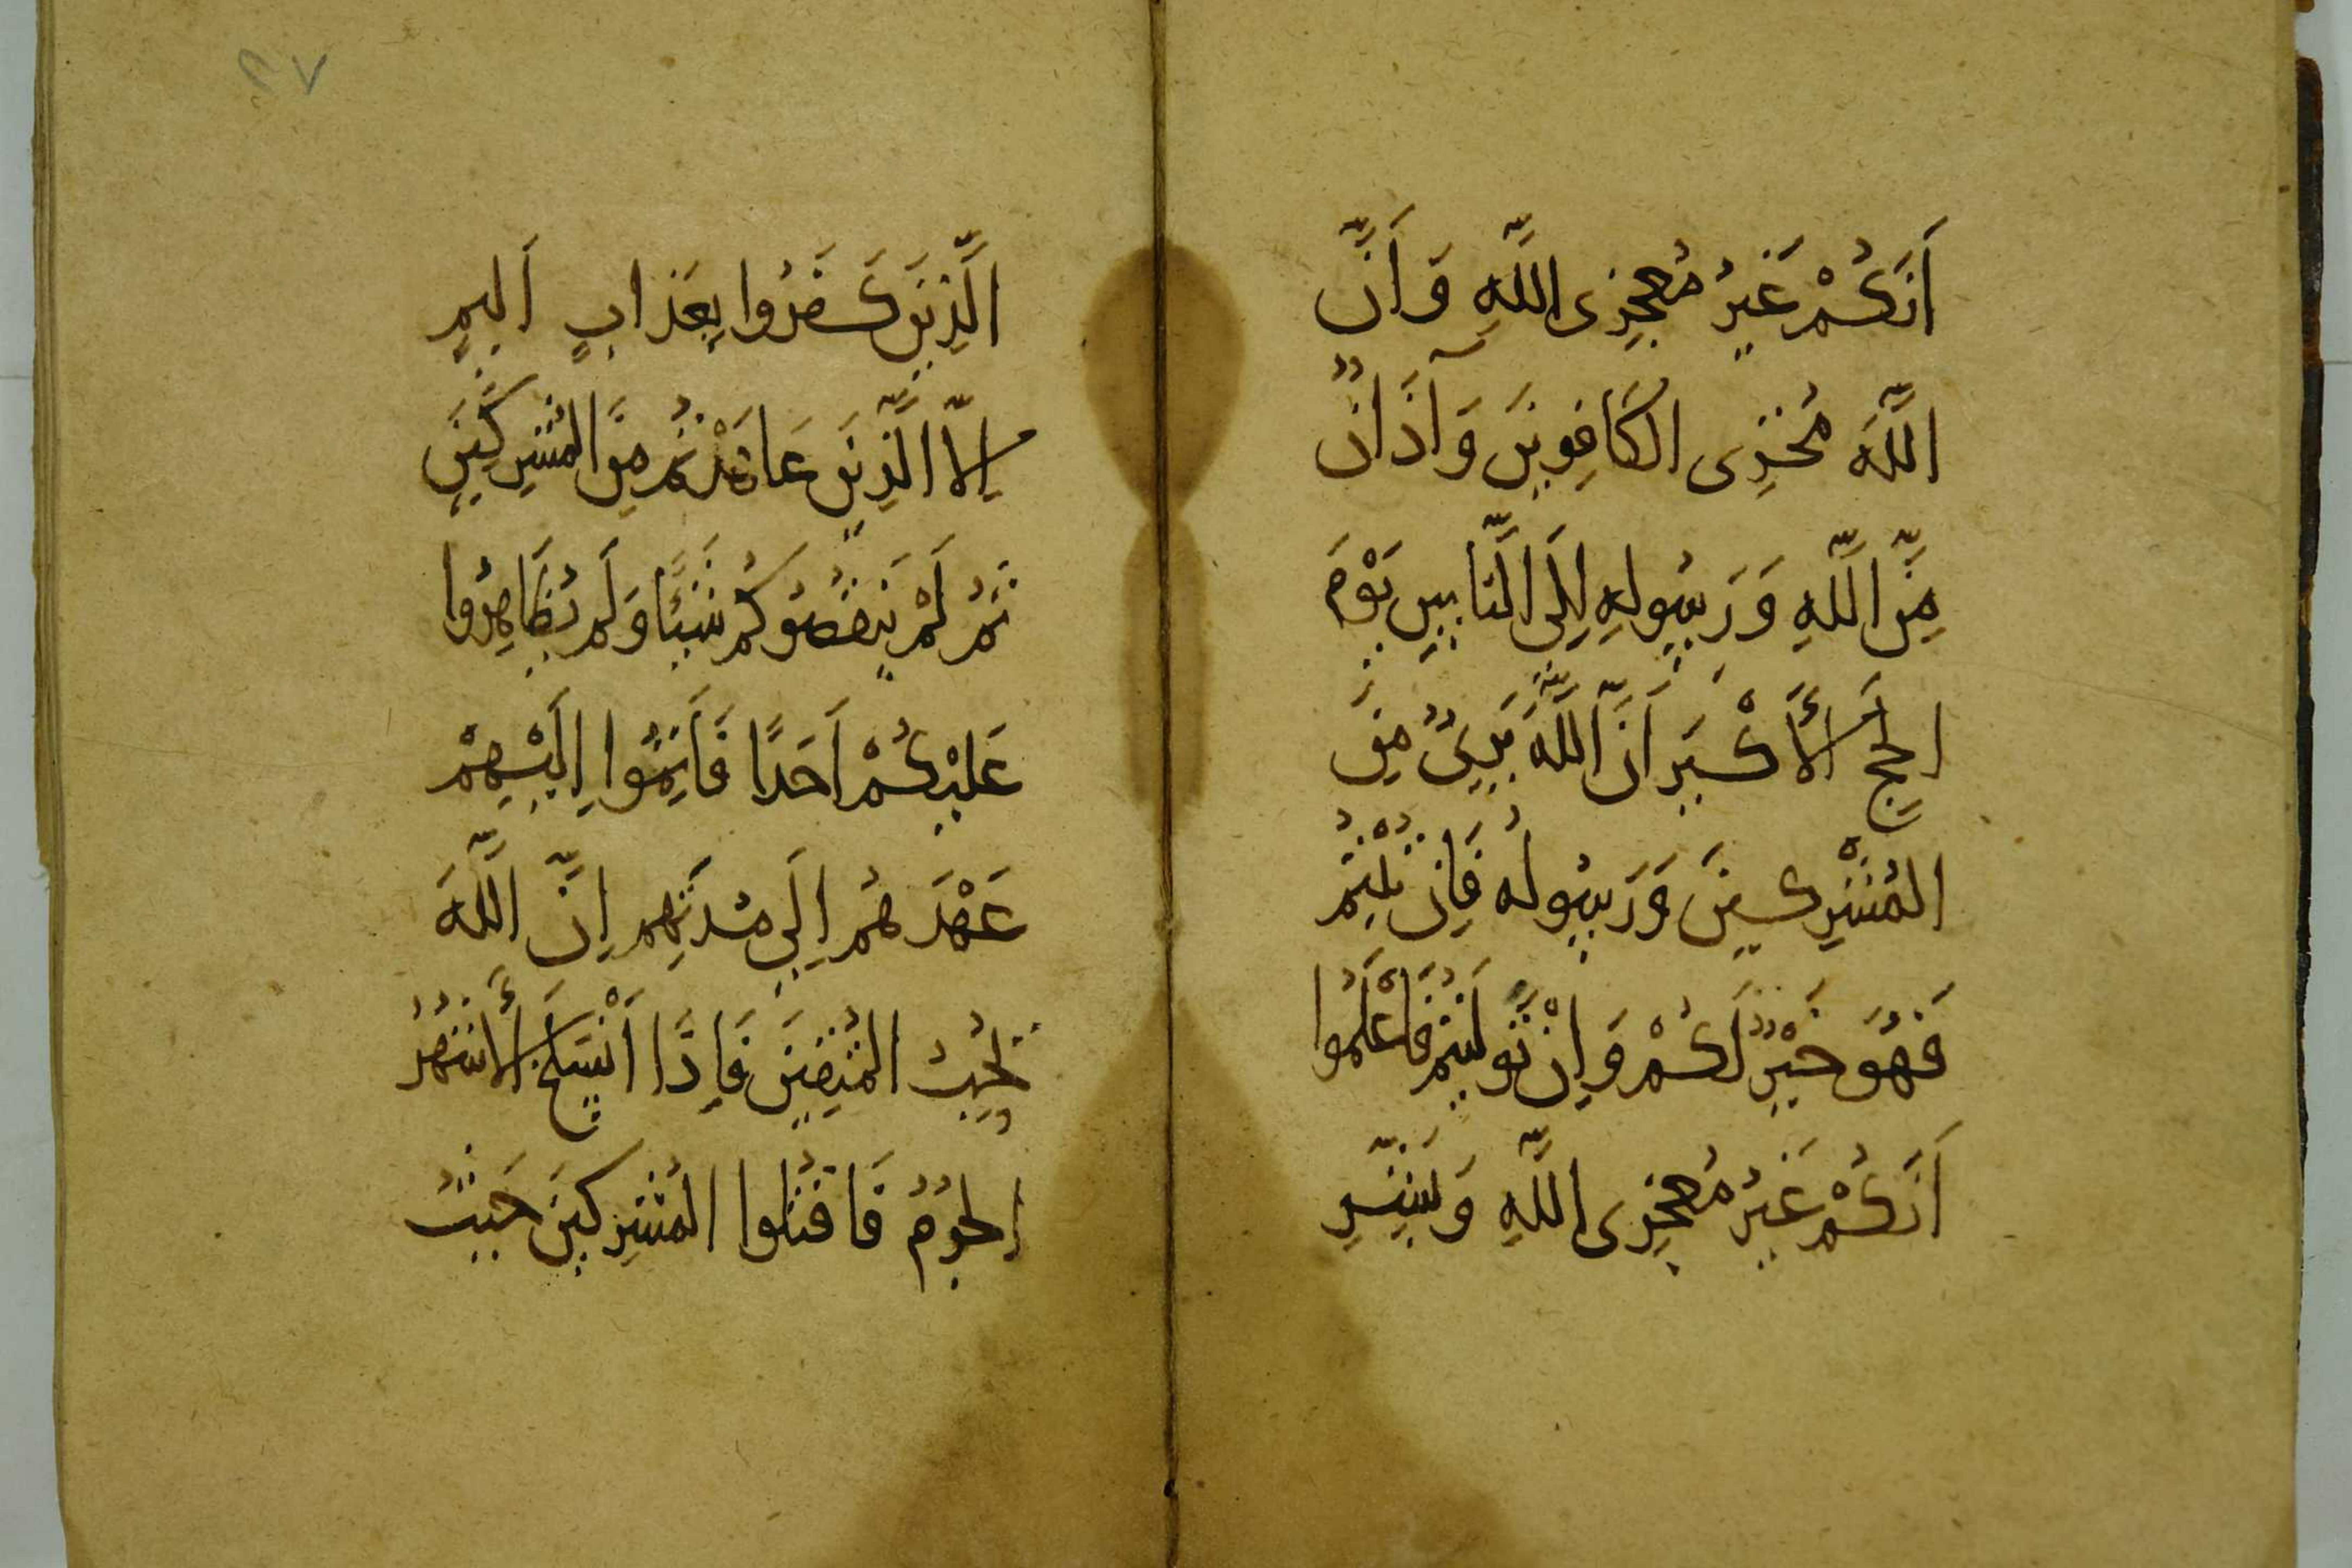 أَنَّكُمْ غَيْرُ مُعْجِزِى اللَّهِ وَأَنَّ
اللَّهَ مُخْزِى الْكَافِرِينَ وَأَذَانٌ
مِنَ اللَّهِ وَرَسُولِهِ إِلَى النَّاسِ يَوْمَ
الْحَجِّ الْأَكْبَرِ أَنَّ اللَّهَ بَرِىءٌ مِنَ
الْمُشْرِكِينَ وَرَسُولُهُ فَإِنْ تُبْتُمْ
فَهُوَ خَيْرٌ لَكُمْ وَإِنْ تَوَلَّيْتُمْ فَاعْلَمُوا
أَنَّكُمْ غَيْرُ مُعْجِزِى اللَّهِ وَبَشِّرِ
الَّذِينَ كَفَرُوا بِعَذَابٍ أَلِيمٍ
إِلَّا الَّذِينَ عَاهَدْتُمْ مِنَ الْمُشْرِكِينَ
ثُمَّ لَمْ يَنْقُصُوكُمْ شَيْئًا وَلَمْ يُظَاهِرُوا
عَلَيْكُمْ أَحَدًا فَأَتِمُّوا إِلَيْهِمْ
عَهْدَهُمْ إِلَى مُدَّتِهِمْ إِنَّ اللَّهَ
يُحِبُّ الْمُتَّقِينَ فَإِذَا انْسَلَخَ الْأَشْهُرُ
الْحُرُمُ فَاقْتُلُوا الْمُشْرِكِينَ حَيْثُ